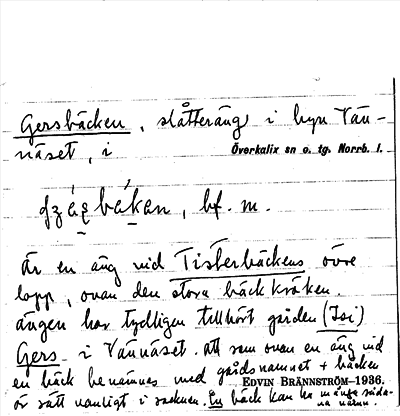 Gersbäcken, slåtteräng i byn Vän-
näset, i Överkalix sn o. tg. Norrb. l.
bf. m.
Är en äng vid Tisterbäckens övre
lopp, ovan den stora bäckkröken
ängen har tydligen tillhört gården (Isi)
Gers i Vännäset. Att som ovan en äng vid
en bäck benämnes med gårdsnamnet + bäcken
är rätt vanligt i socknen. En bäck kan ha många såda-
na namn.
EDVIN BRÄNNSTRÖM–1936.